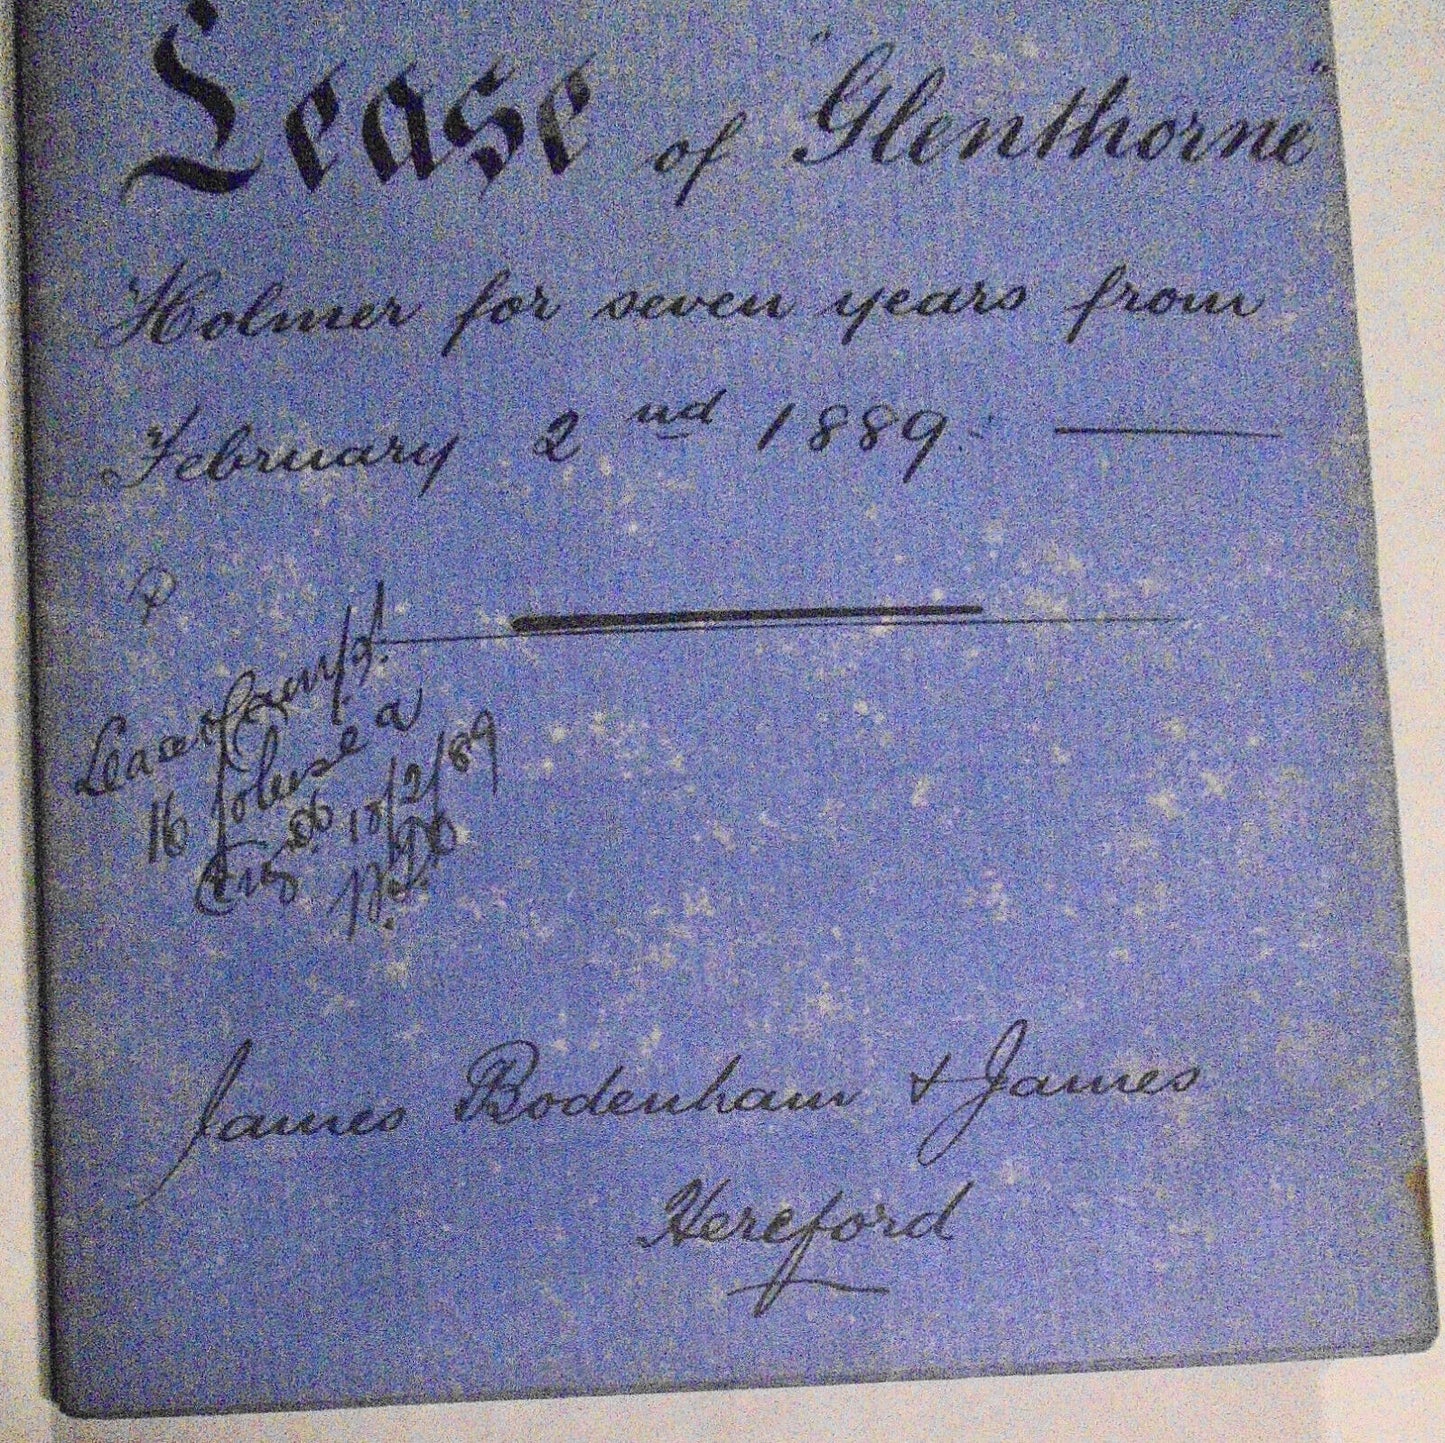 Lease of "Glenthorne"
Holmer for seven years from
February 2nd 1889.
Lease & Counterpt.
16 folios ea
18/2/89
James Bodenham & James
Hereford